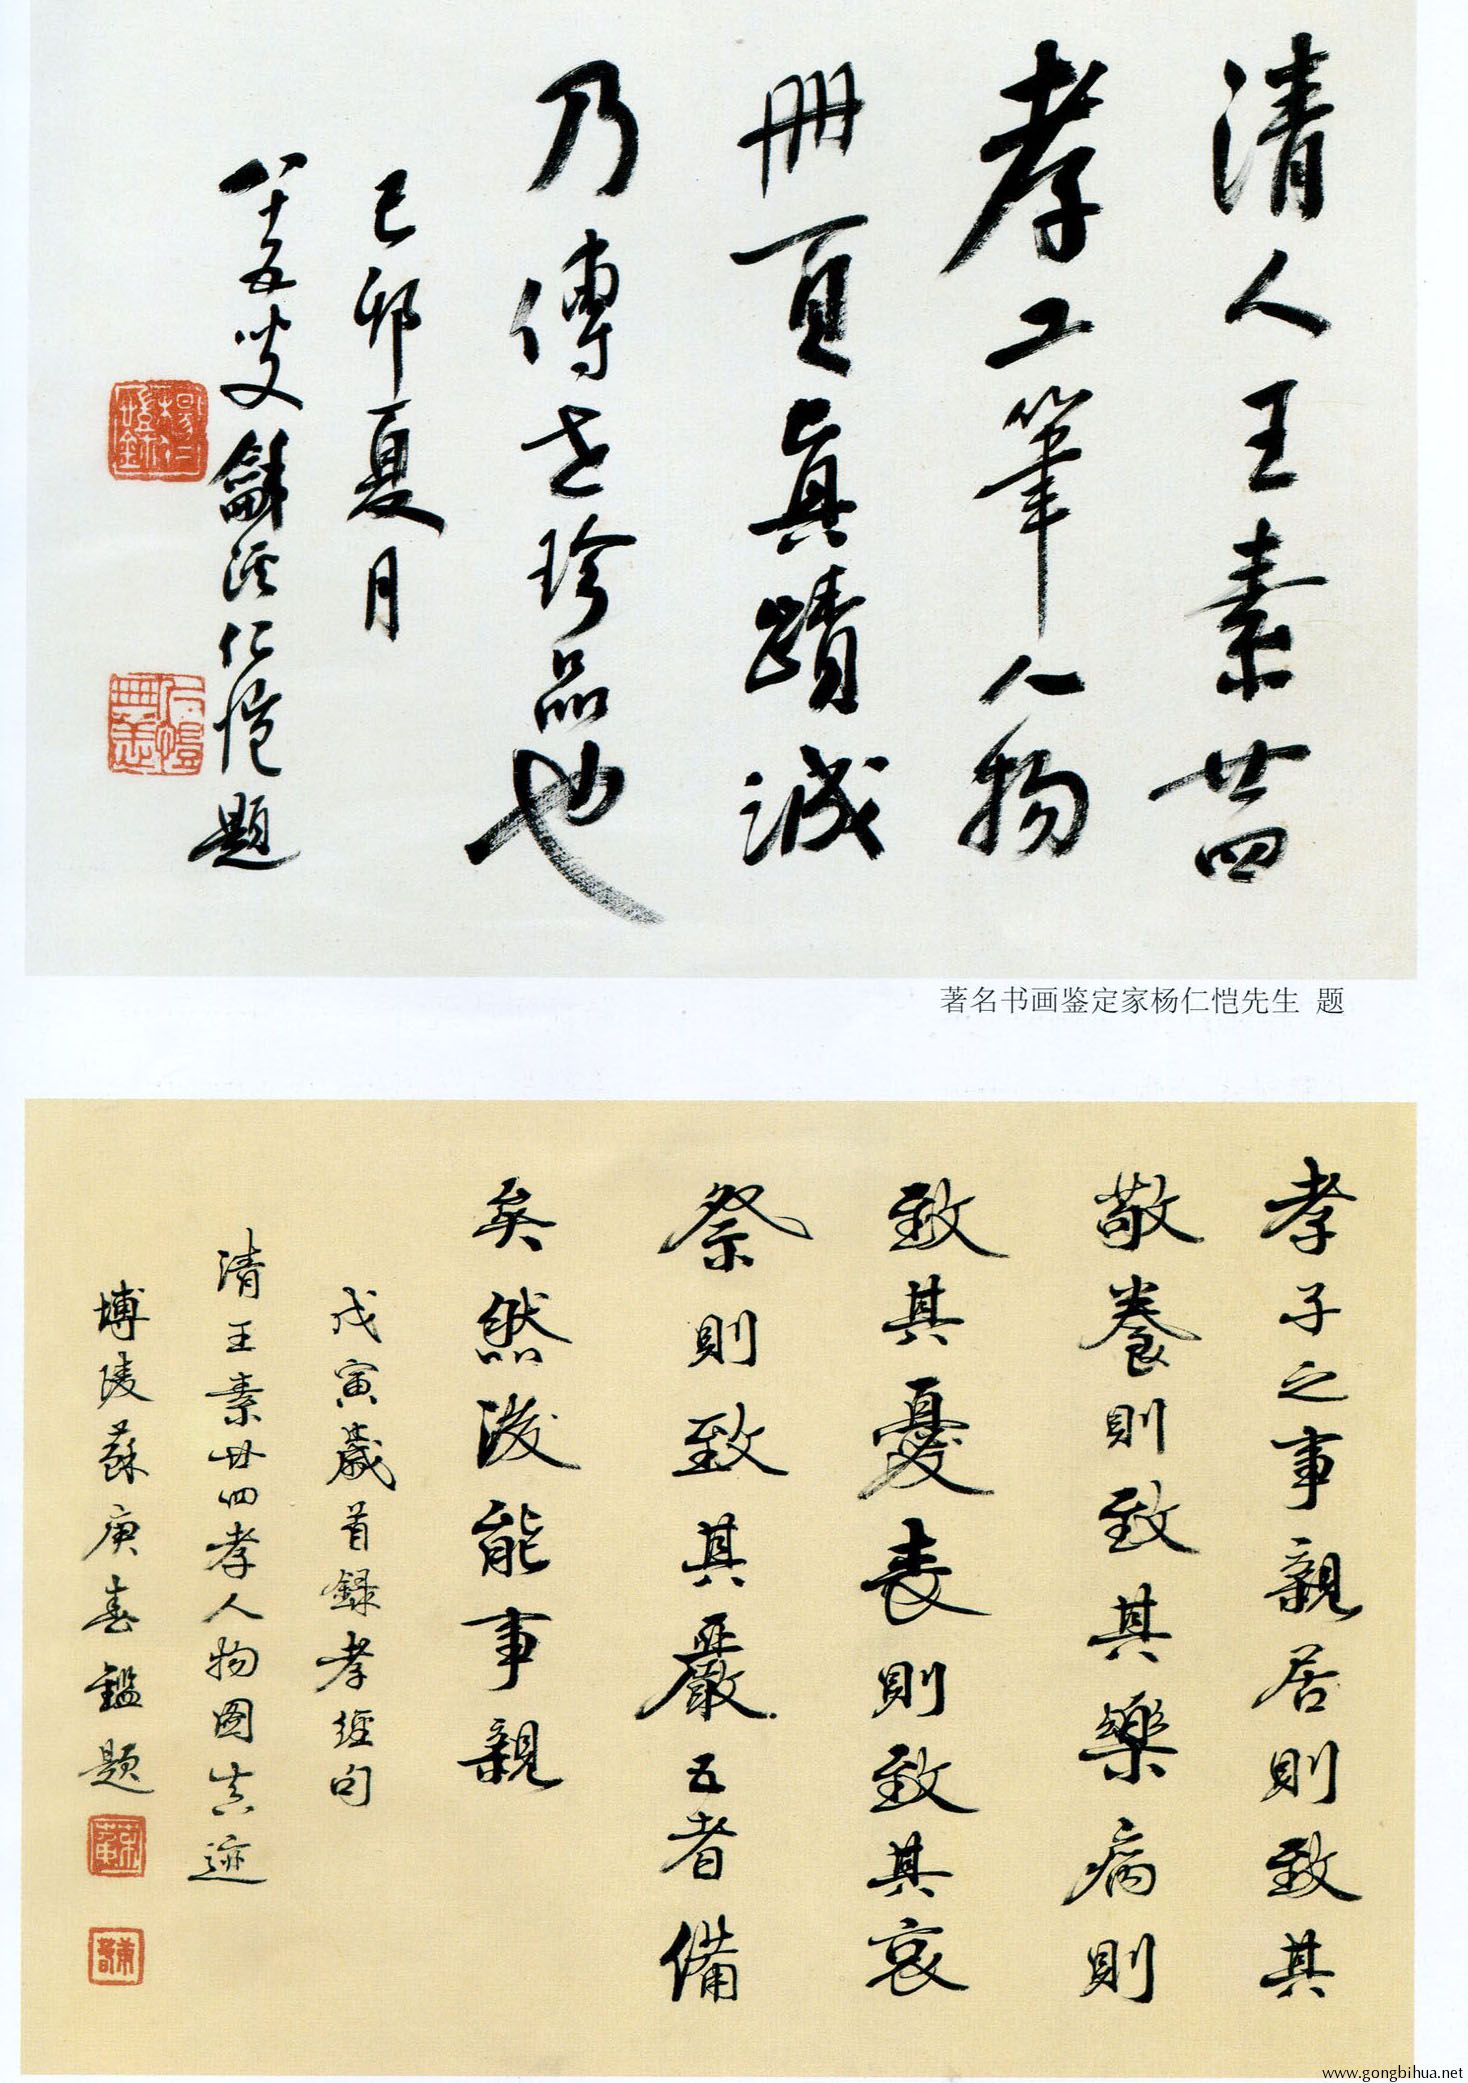 清人王素廿四
孝工筆人物
冊頁真蹟誠
乃傳世珍品也
己卯夏月
八十五叟龢溪仁愷題
著名书画鉴定家杨仁恺先生 题
孝子之事親居則致其
敬養則致其樂病則
致其憂喪則致其哀
祭則致其嚴五者備
矣然後能事親
戊寅歲首録孝經句
清王素廿四孝人物图真迹
博陵蘇庚春鑑題
www.gongbihua.net